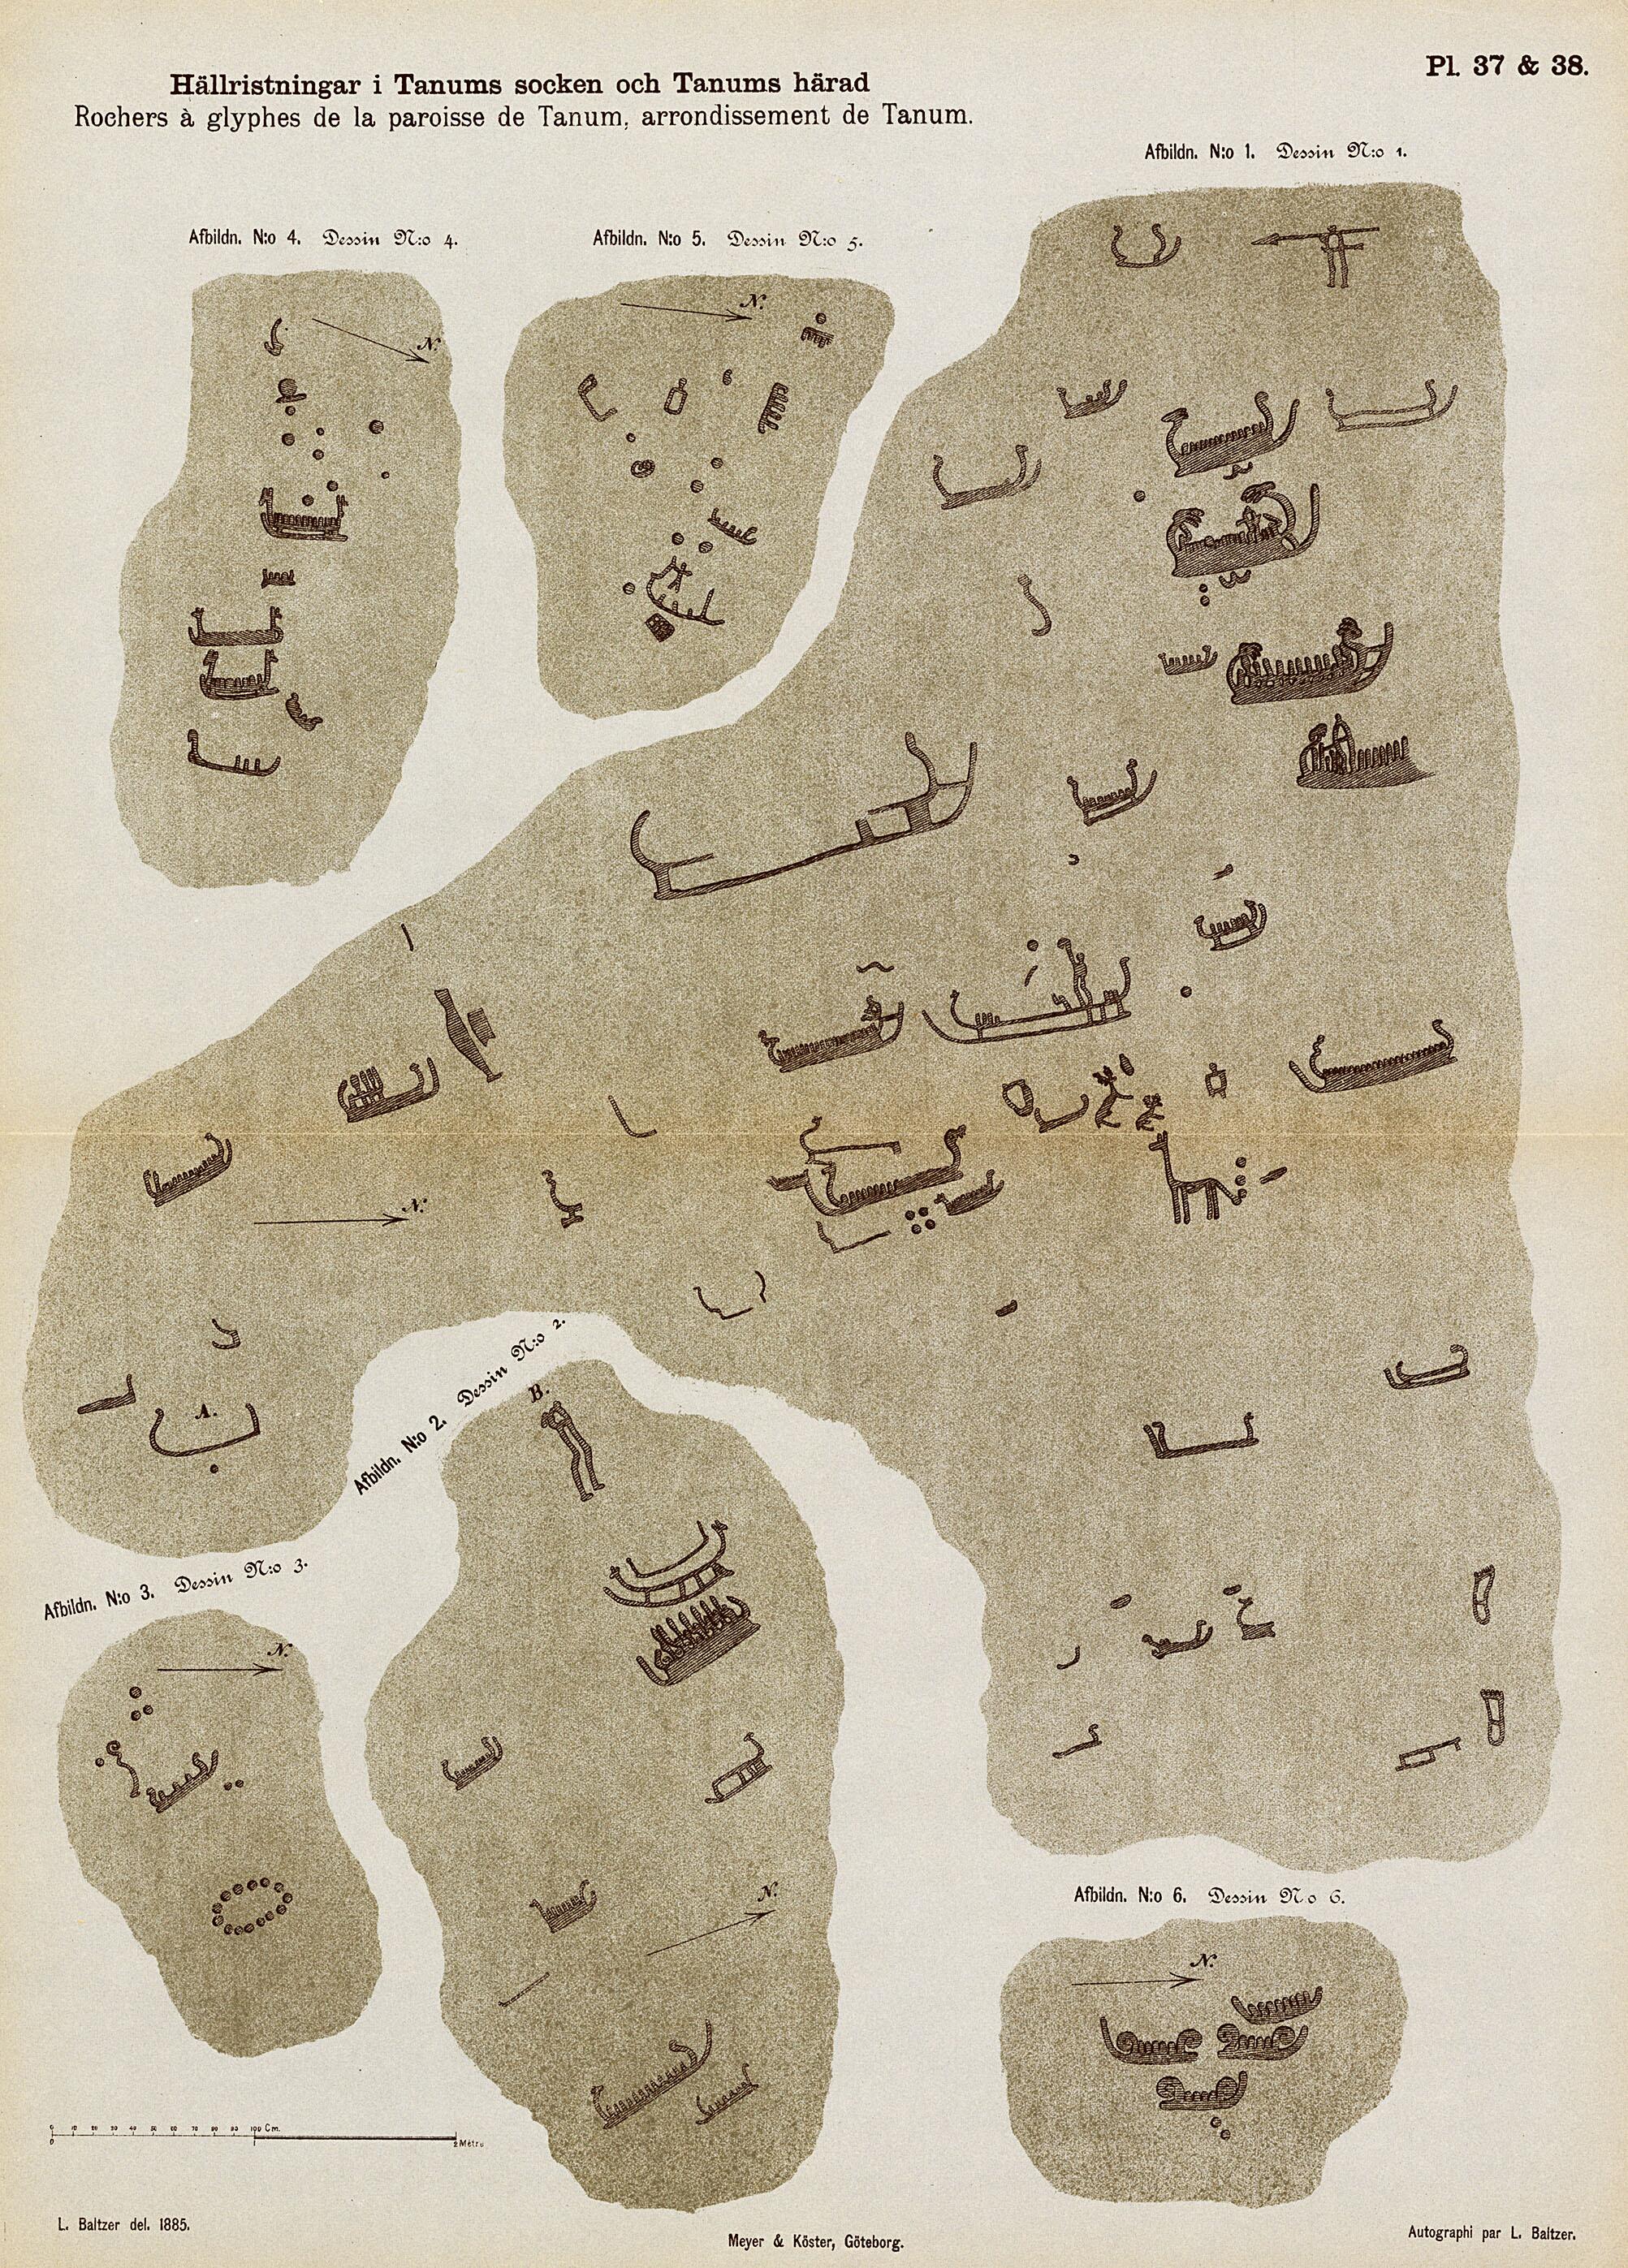 Pl. 37 & 38.
Hällristningar i Tanums socken och Tanums härad
Rochers à glyphes de la paroisse de Tanum, arrondissement de Tanum.
Afbildn. N:o 1. Dessin N:o 1.
Afbildn. N:o 4. Dessin N:o 4.
Afbildn. N:o 5. Dessin N:o 5.
N.
N.
N.
Afbildn. N:o 2. Dessin N:o 2.
B.
A.
Afbildn. N:o 3. Dessin N:o 3.
N.
N.
Afbildn. N:o 6. Dessin N:o 6.
N.
0 10 20 30 40 50 60 70 80 90 100 Cm.
0 1 2 Mètre
L. Baltzer del. 1885.
Meyer & Köster, Göteborg.
Autographi par L. Baltzer.